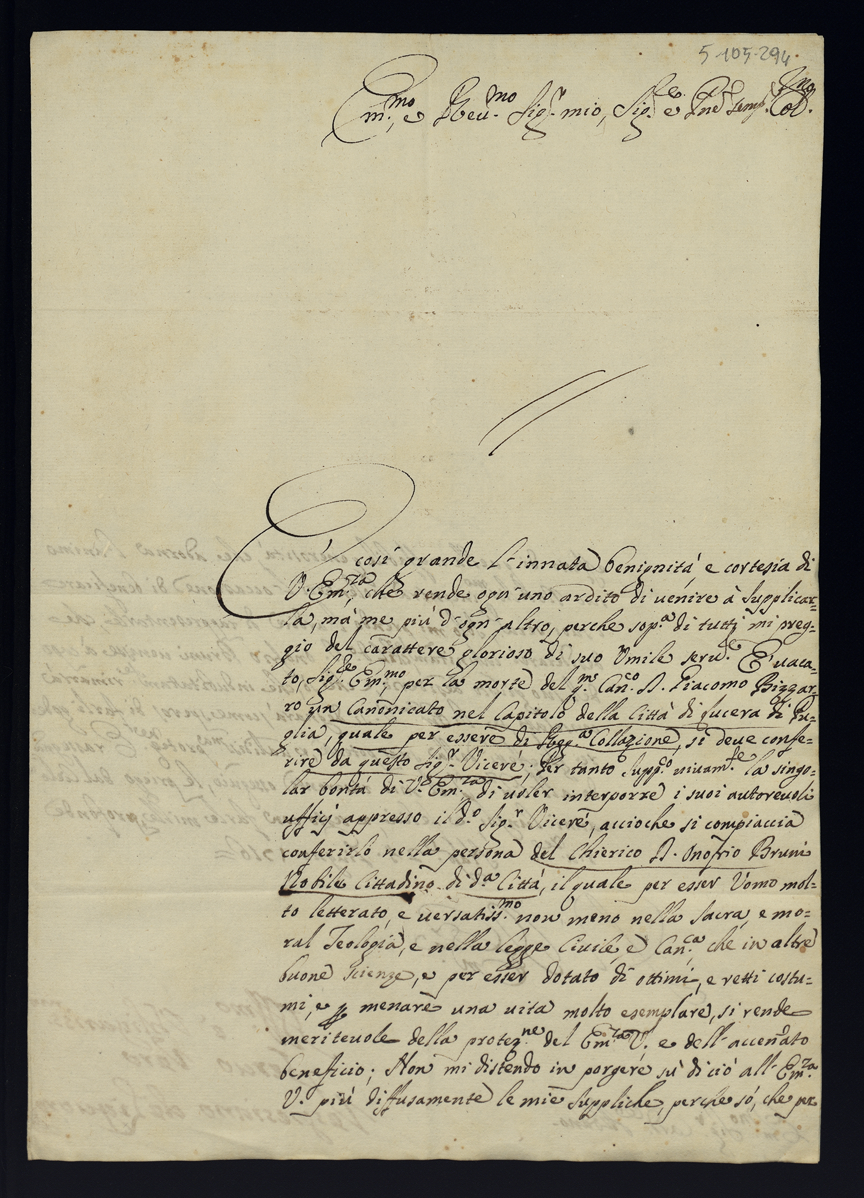 5-105-294.
Em.mo, e Reu.mo Sig.r mio, Sig.re e Pne Semp. Col.mo
È così grande l'innata benignità, e cortesia di
V. Em.za, che rende ogn'uno ardito di uenire à supplicar=
la, mà me più d'ogn'altro, perche sop.a di tutti mi preg=
gio del carattere glorioso di suo Umile seru.e. E' uaca=
to, Sig.re Em.mo, per la morte del q.m Can.co D. Giacomo Bizzar=
ro un Canonicato nel Capitolo della Città di Lucera di Pu=
glia, quale per essere di Reg.a Collazione, si deue confe=
rire da questo Sig.r Vicerè; Per tanto supp.co uiuam.te la singo=
lar bontà di V.a Em.za di uoler interporre i suoi autoreuoli
ufficj appresso il d.o Sig.r Vicerè, accioche si compiaccia
conferirlo nella persona del Chierico D. Onofrio Bruni
Nobile Cittadino di d.a Città, il quale per esser Uomo mol=
to letterato, e uersatiss.mo non meno nella sacra, e mo=
ral Teologia, e nella legge Ciuile, e Can.ca, che in altre
buone scienze, e per esser dotato di ottimi, e retti costu=
mi, e p menare una uita molto esemplare, si rende
meriteuole della protez.ne del Em.za V. e dell'accennato
beneficio; Non mi distendo in porgere sù di ciò all'Em.za
V. più diffusamente le mie suppliche, perche sò, che per